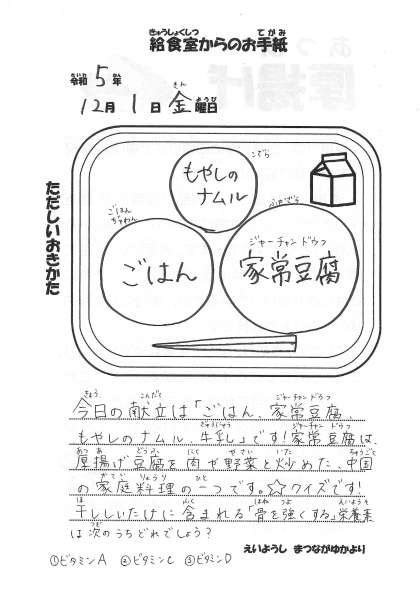 給食室からのお手紙
令和5年
12月1日金曜日
ただしいおきかた
もやしの
ナムル
こざら
ごはん
ちゃわん
ごはん
ふかざら
ジャーチャンドウフ
家常豆腐
今日の献立は「ごはん、家常豆腐、
もやしのナムル、牛乳」です!家常豆腐は、
厚揚げ豆腐を肉や野菜と炒めた、中国
の家庭料理の一つです。☆クイズです!
干ししいたけに含まれる「骨を強くする」栄養素
は次のうちどれでしょう?
①ビタミンA ②ビタミンC ③ビタミンD
えいようし まつながゆかより